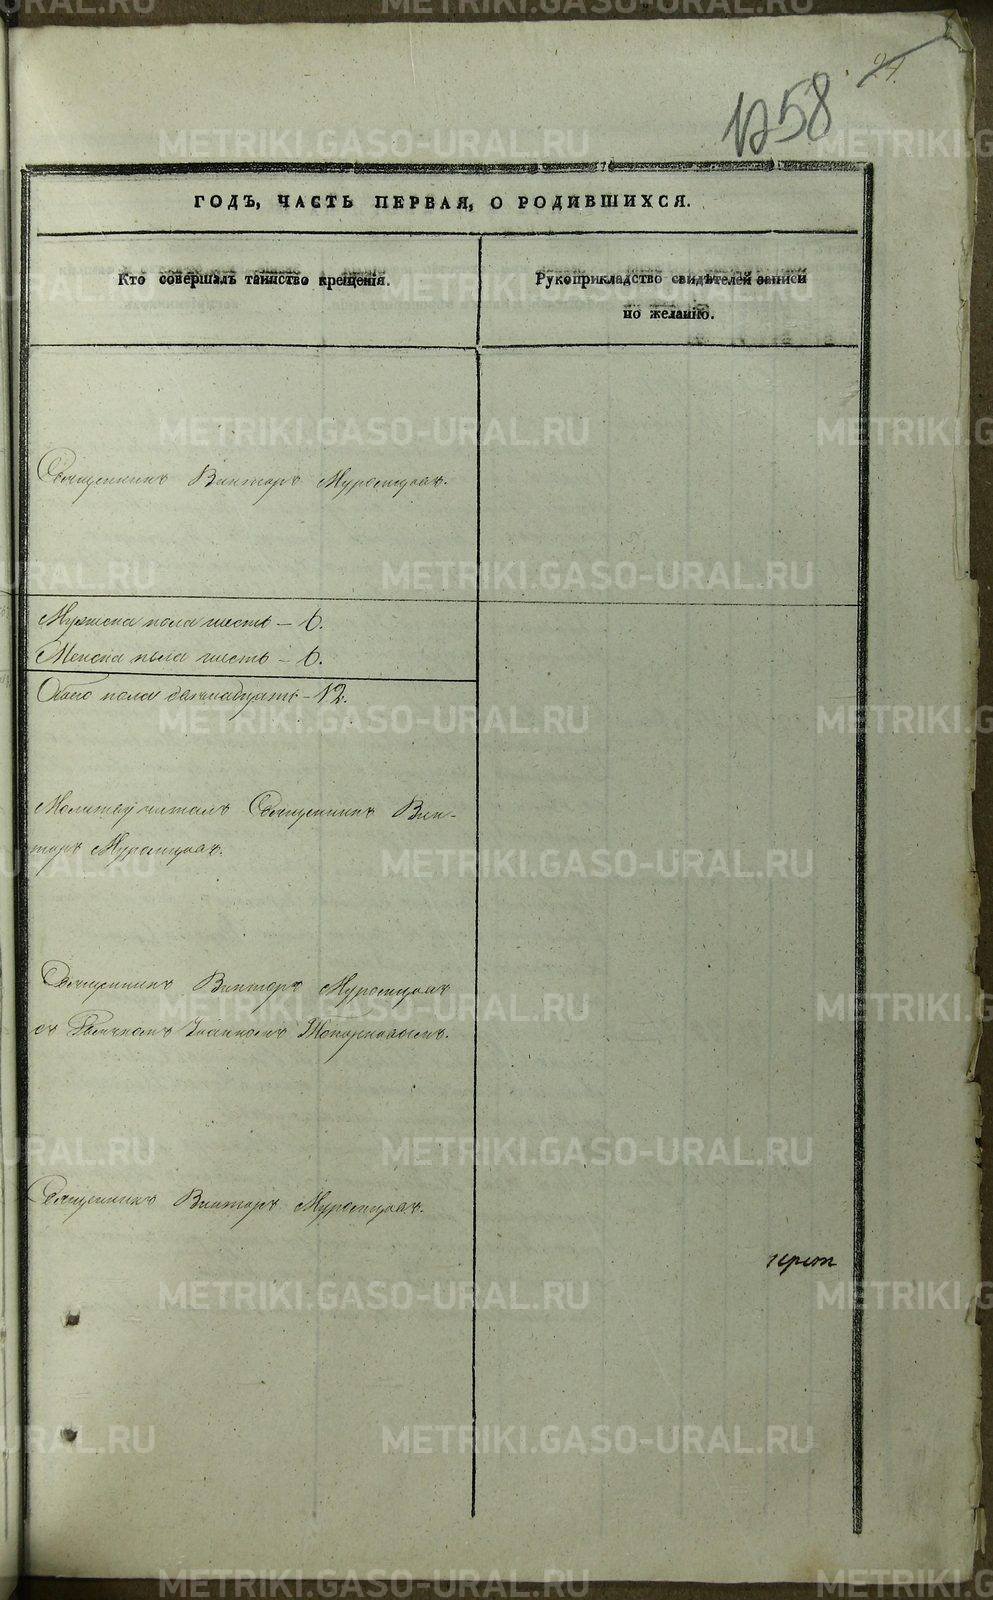 24.
1258
ГОДЪ, ЧАСТЬ ПЕРВАЯ, О РОДИВШИХСЯ.
Кто совершалъ таинство крещенія.
Рукоприкладство свидѣтелей записи
по желанію.
Священникъ Викторъ Муромцовъ.
Мужеска пола шесть – 6.
Женска пола шесть – 6.
Обоего пола двенадцать – 12.
Молитву читалъ Священникъ Вик-
торъ Муромцовъ.
Священникъ Викторъ Муромцовъ
съ Іоанномъ Топорковымъ.
Священникъ Викторъ Муромцовъ.
METRIKI.GASO-URAL.RU